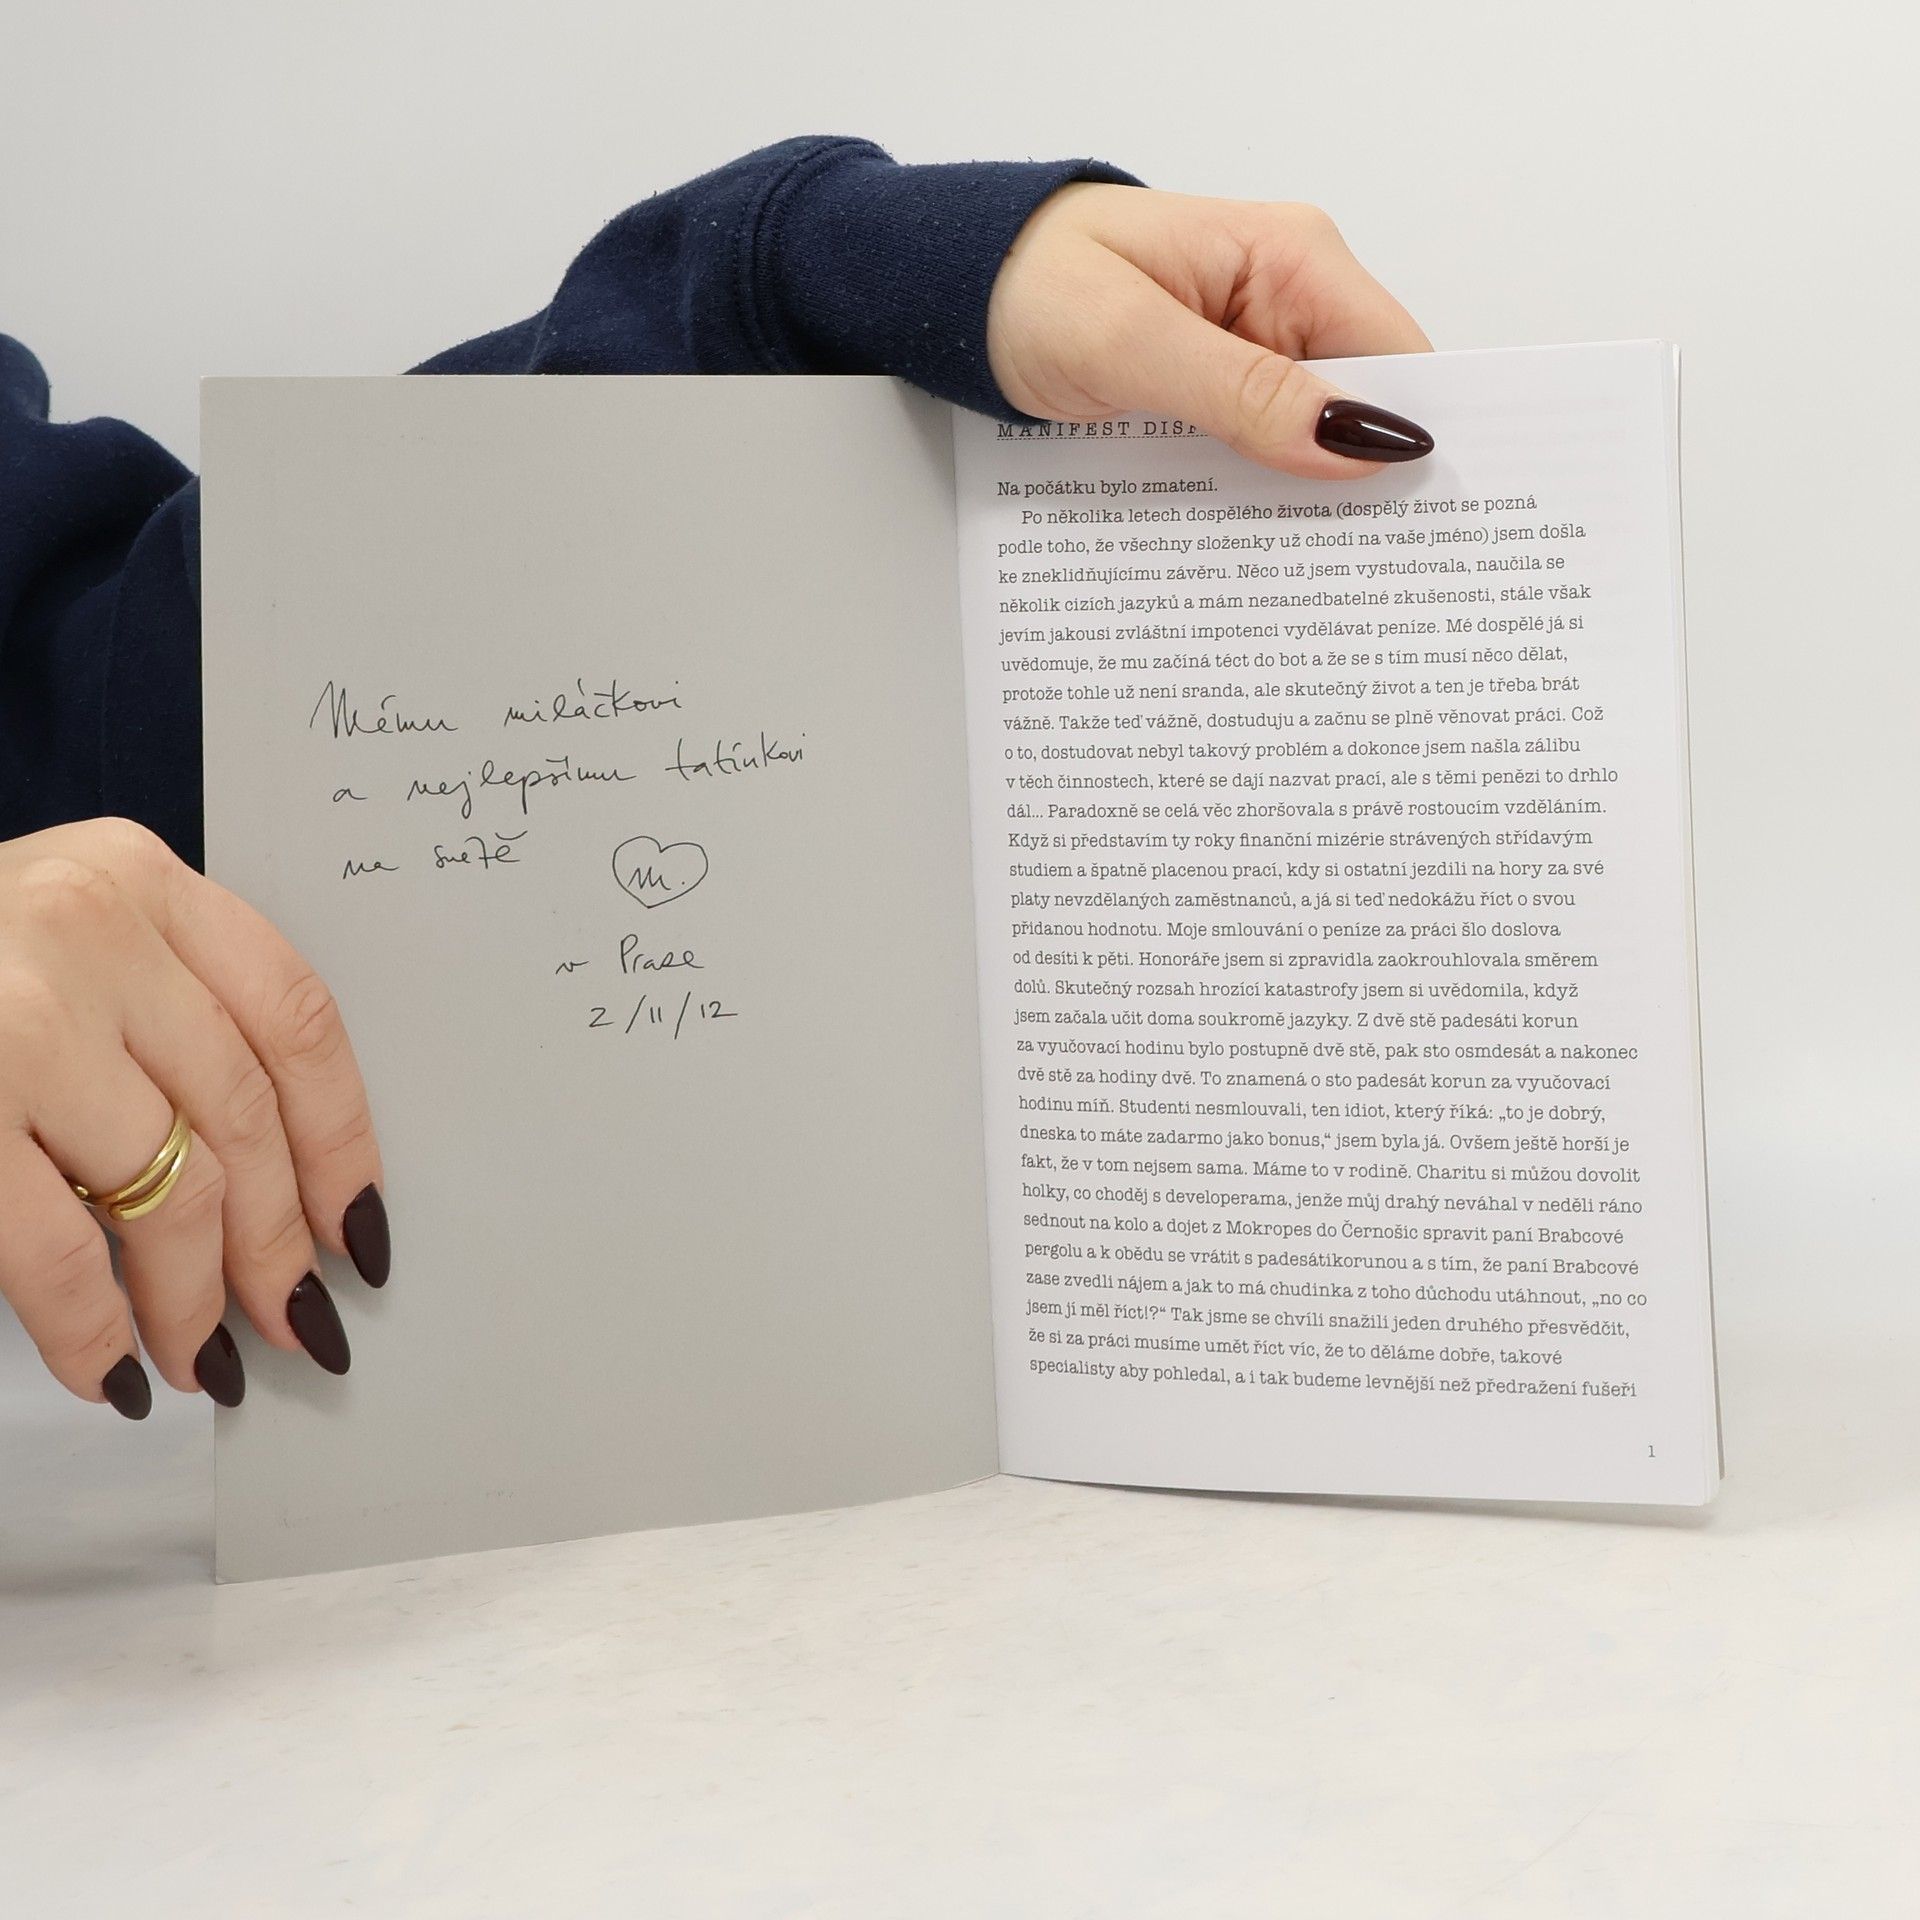 Mému miláčkovi
a nejlepšímu tatínkovi
na světě
M.
v Praze
2/11/12
MANIFEST
Na počátku bylo zmatení.
Po několika letech dospělého života (dospělý život se pozná
podle toho, že všechny složenky už chodí na vaše jméno) jsem došla
ke zneklidňujícímu závěru. Něco už jsem vystudovala, naučila se
několik cizích jazyků a mám nezanedbatelné zkušenosti, stále však
jevím jakousi zvláštní impotenci vydělávat peníze. Mé dospělé já si
uvědomuje, že mu začíná téct do bot a že se s tím musí něco dělat,
protože tohle už není sranda, ale skutečný život a ten je třeba brát
vážně. Takže teď vážně, dostuduju a začnu se plně věnovat práci. Což
o to, dostudovat nebyl takový problém a dokonce jsem našla zálibu
v těch činnostech, které se dají nazvat prací, ale s těmi penězi to drhlo
dál... Paradoxně se celá věc zhoršovala s právě rostoucím vzděláním.
Když si představím ty roky finanční mizérie strávených střídavým
studiem a špatně placenou prací, kdy si ostatní jezdili na hory za své
platy nevzdělaných zaměstnanců, a já si teď nedokážu říct o svou
přidanou hodnotu. Moje smlouvání o peníze za práci šlo doslova
od desíti k pěti. Honoráře jsem si zpravidla zaokrouhlovala směrem
dolů. Skutečný rozsah hrozící katastrofy jsem si uvědomila, když
jsem začala učit doma soukromě jazyky. Z dvě stě padesáti korun
za vyučovací hodinu bylo postupně dvě stě, pak sto osmdesát a nakonec
dvě stě za hodiny dvě. To znamená o sto padesát korun za vyučovací
hodinu míň. Studenti nesmlouvali, ten idiot, který říká: „to je dobrý,
dneska to máte zadarmo jako bonus,“ jsem byla já. Ovšem ještě horší je
fakt, že v tom nejsem sama. Máme to v rodině. Charitu si můžou dovolit
holky, co choděj s developerama, jenže můj drahý neváhal v neděli ráno
sednout na kolo a dojet z Mokropes do Černošic spravit paní Brabcové
pergolu a k obědu se vrátit s padesátikorunou a s tím, že paní Brabcové
zase zvedli nájem a jak to má chudinka z toho důchodu utáhnout, „no co
jsem jí měl říct!?“ Tak jsme se chvíli snažili jeden druhého přesvědčit,
že si za práci musíme umět říct víc, že to děláme dobře, takové
specialisty aby pohledal, a i tak budeme levnější než předražení fušeři
1